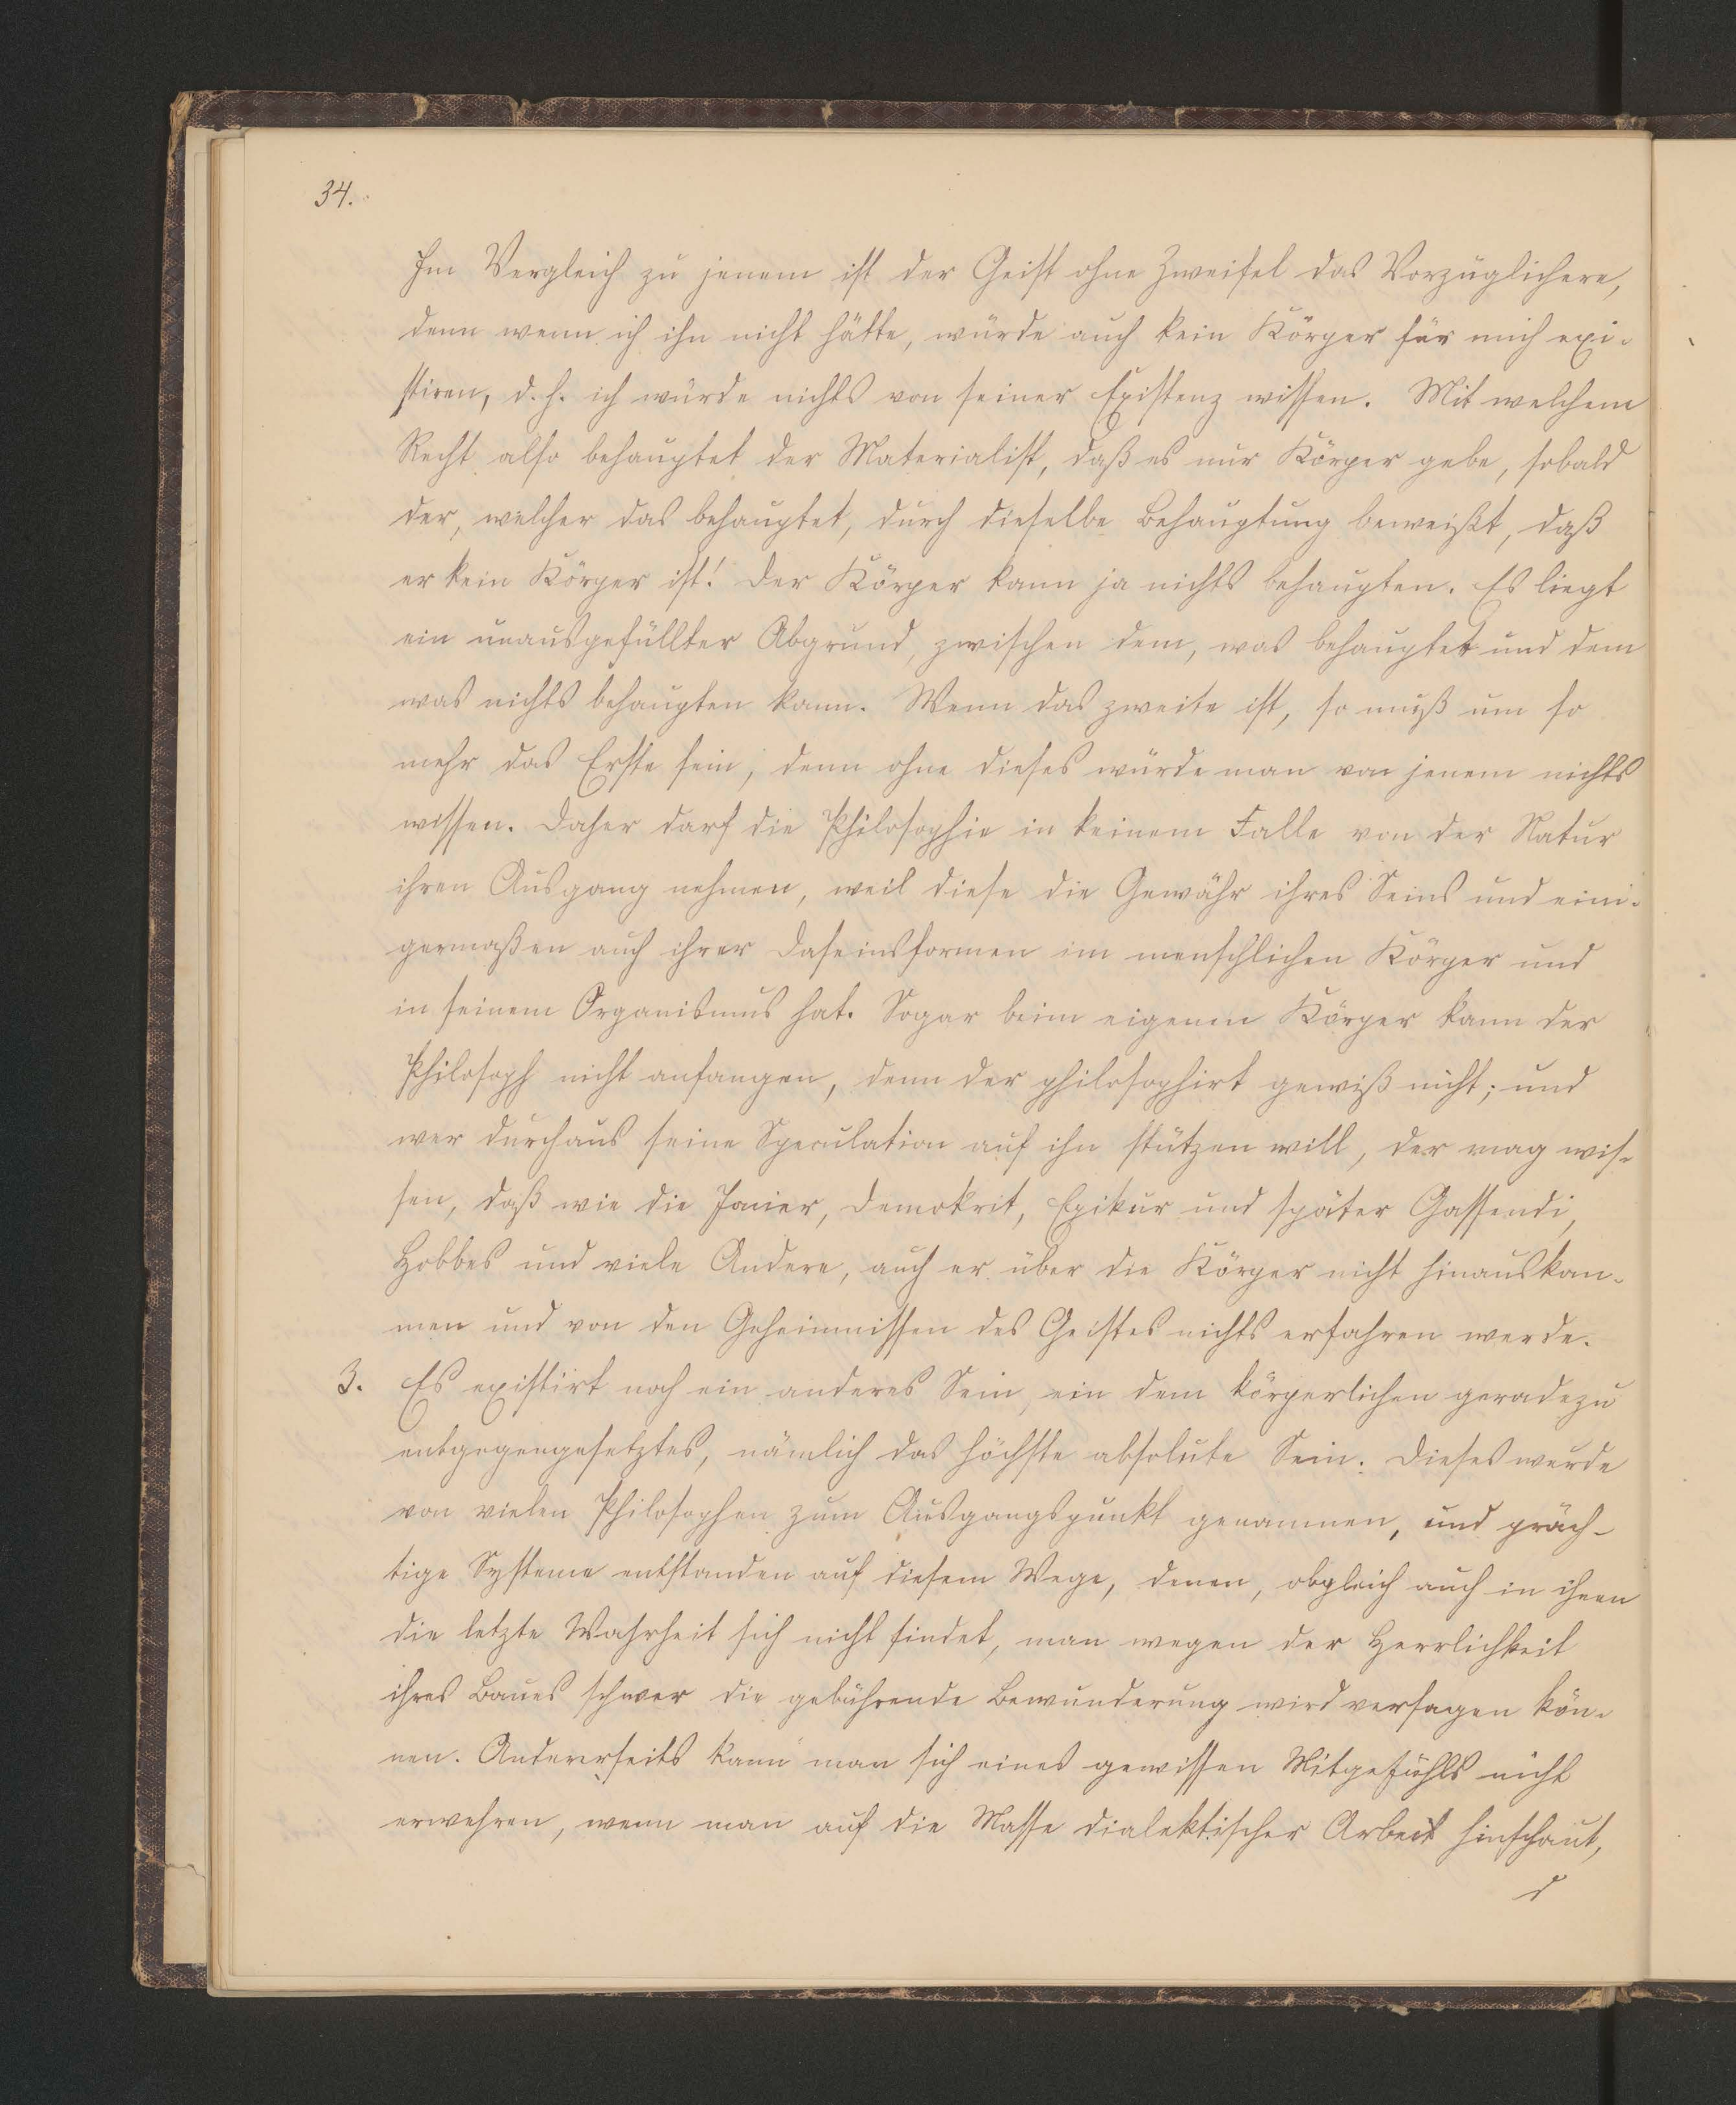 34.
Im Vergleich zu jenem ist der Geist ohne Zweifel das Vorzüglichere,
denn wenn ich ihn nicht hätte, würde auch kein Körper für mich exi-
stiren, d. h. ich würde nichts von seiner Existenz wissen. Mit welchem
Recht also behauptet der Materialist, daß es nur Körper gebe, sobald
der, welcher das behauptet, durch dieselbe Behauptung beweißt, daß
er kein Körper ist! Der Körper kann ja nichts behaupten. Es liegt
ein unausgefüllter Abgrund, zwischen dem, was behauptet und dem
was nichts behaupten kann. Wenn das zweite ist, so muß um so
mehr das Erste sein, denn ohne dieses würde man von jenem nichts
wissen. Daher darf die Philosophie in keinem Falle von der Natur
ihren Ausgang nehmen, weil diese die Gewähr ihres Seins und eini-
germaßen auch ihrer Daseinsformen im menschlichen Körper und
in seinem Organismus hat. Sogar beim eigenen Körper kann der
Philosoph nicht anfangen, denn der philosophirt gewiß nicht; und
wer durchaus seine Speculation auf ihn stützen will, der mag wis-
sen, daß wie die Jonier, Demokrit, Epikur und später Gassendi,
Hobbes und viele Andere, auch er über die Körper nicht hinauskom-
men und von den Geheimnissen des Geistes nichts erfahren werde.
3. Es existirt noch ein anderes Sein, ein dem körperlichen geradezu
entgegengesetztes, nämlich das höchste absolute Sein. Dieses wurde
von vielen Philosophen zum Ausgangspunkt genommen, und präch-
tige Systeme entstanden auf diesem Wege, denen, obgleich auch in ihnen
die letzte Wahrheit sich nicht findet, man wegen der Herrlichkeit
ihres Baues schwer die gebührende Bewunderung wird versagen kön-
nen. Andererseits kann man sich eines gewissen Mitgefühls nicht
erwehren, wenn man auf die Masse dialektischer Arbeit hinschaut,
d